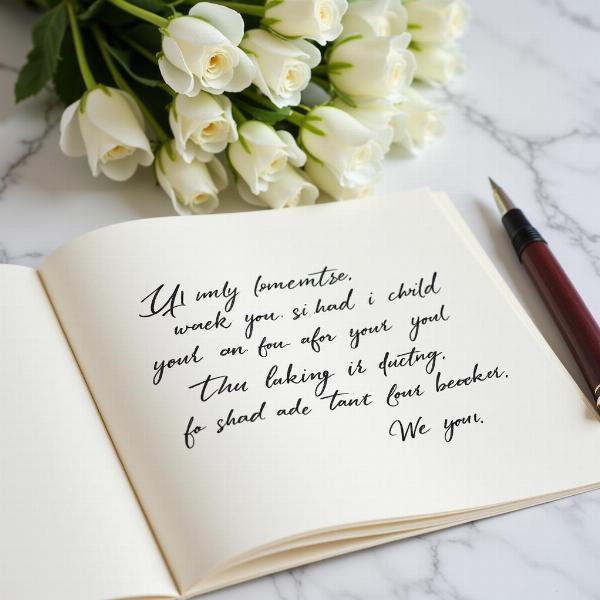 umly lomemtse.
waek you. si had i child
your an fou afor your youl
Thu laking ir ductng.
fo shad ade tant four beacker.
We your.